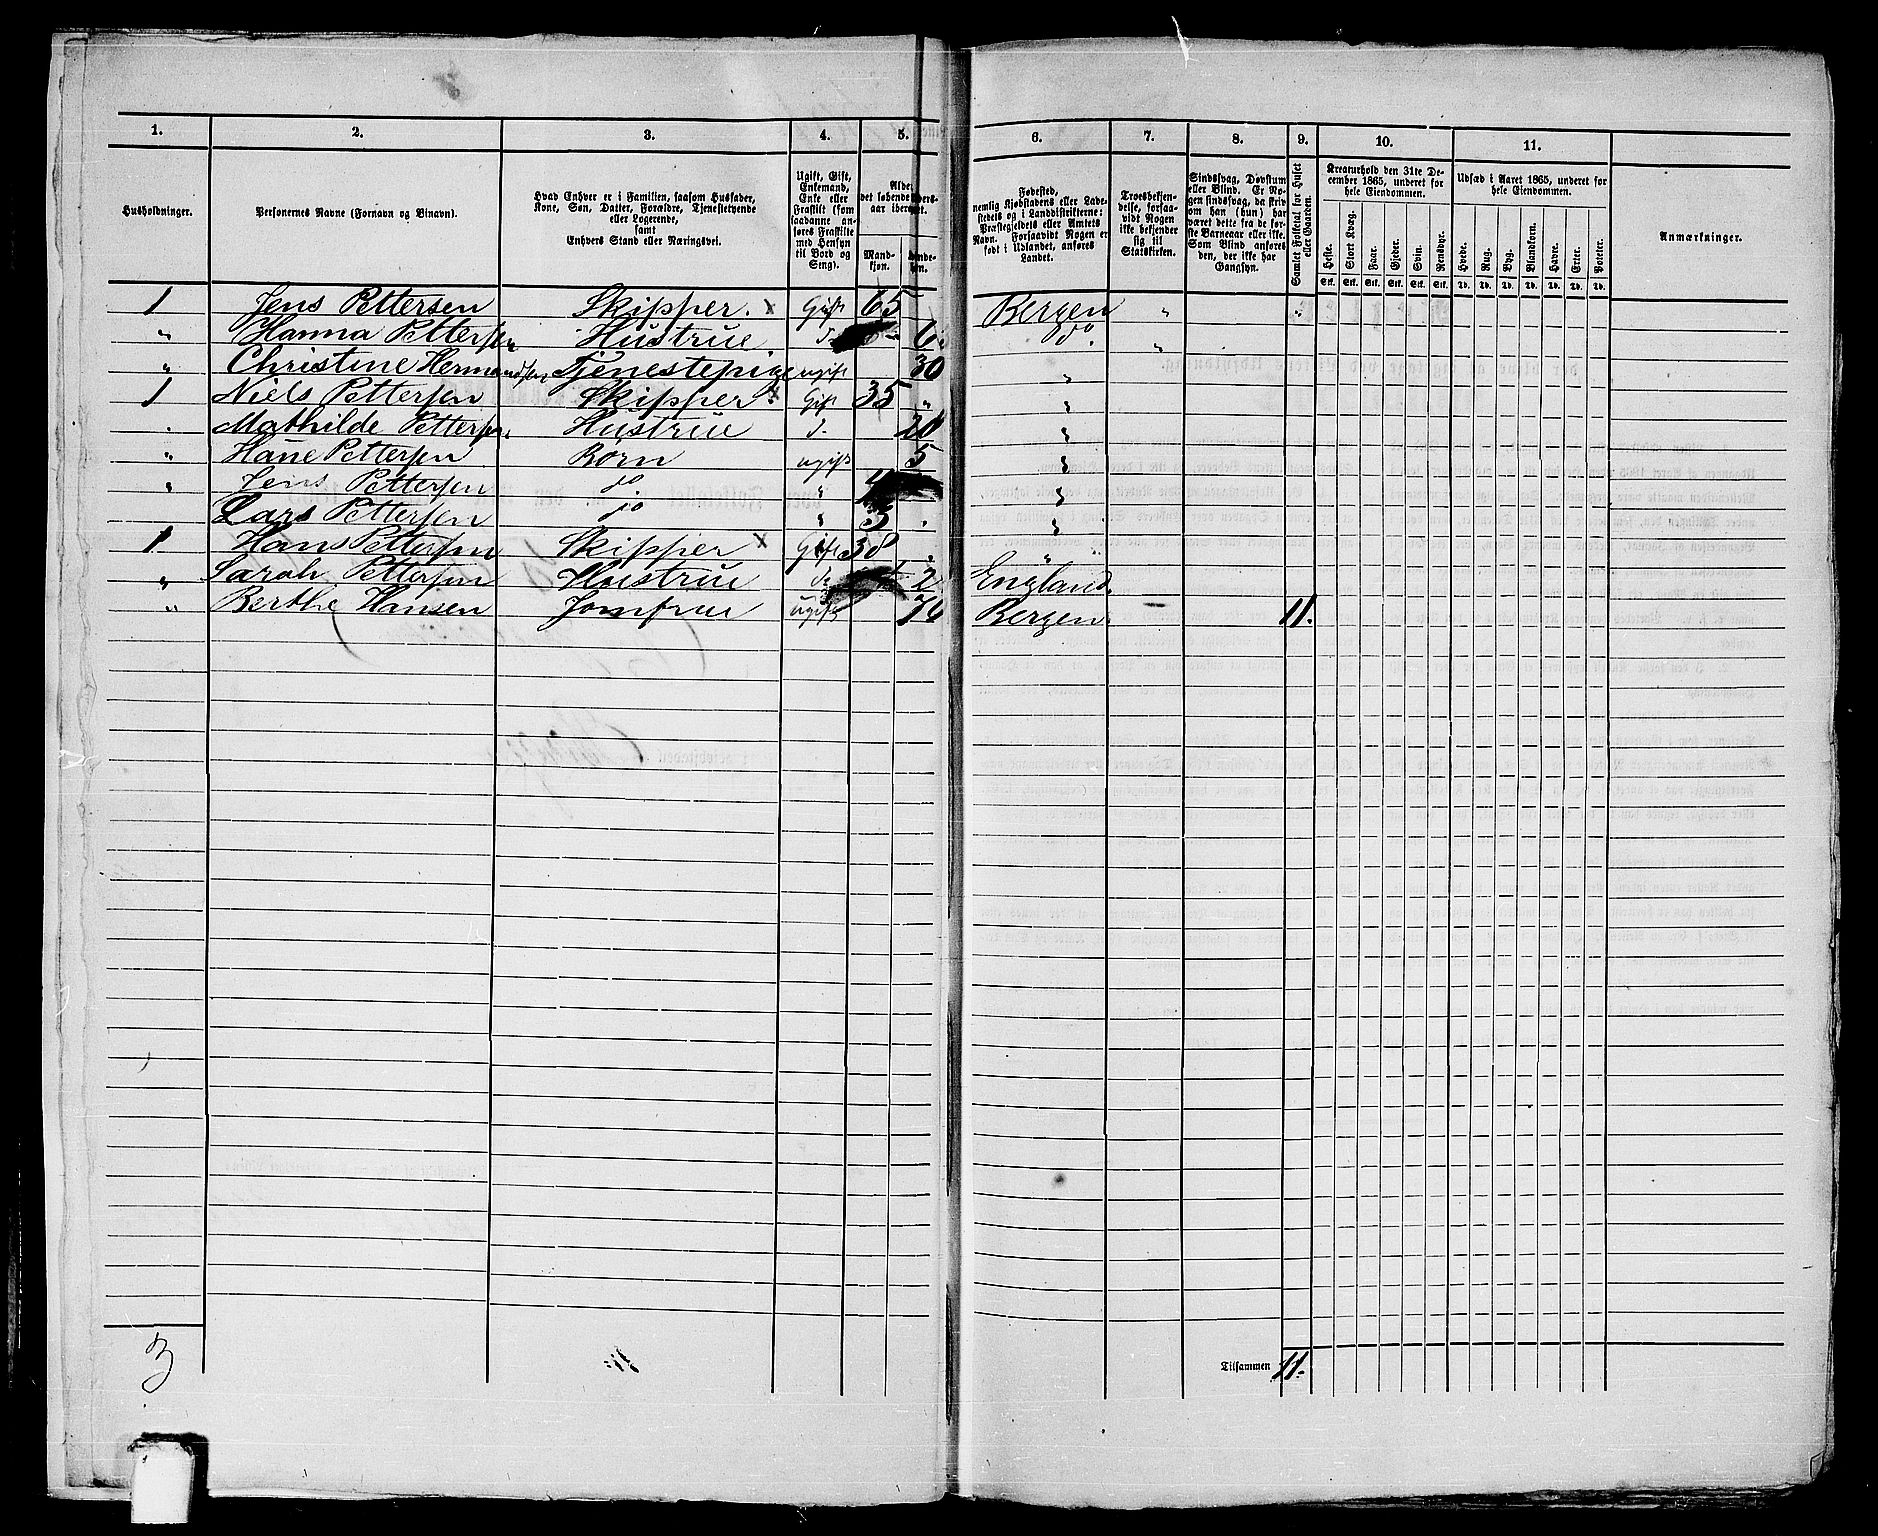 1. 2. 3. 4. 5. 6. 7. 8. 9. 10. 11.
Husholdninger.
Personernes Navne (Fornavn og Binavn).
Hvad Enhver er i Familien, saasom Husfader,
Kone, Søn, Datter, Forældre, Tjenestetyende
eller Logerende,
samt
Enhvers Stand eller Næringsvei.
Ugift, Gift,
Enkemand,
Enke eller
Fraskilt (som
saadanne an-
føres Fraskilte
med Hensyn
til Bord og
Seng).
Mand-
kjøn.
Fødested,
nemlig Kjøbstadens eller Lade-
stedets og i Landdistrikterne:
Præstegjeldets eller Amtets
Navn. Forsaavidt Nogen er
født i Udlandet, anføres
Landet.
Troesbekjen-
delse, forsaa-
vidt Nogen
ikke bekjender
sig til
Statskirken.
Sindssvag, Døvstum
eller Blind. Er No-
gen sindssvag, da skriv
om han (hun) har
været dette fra de før-
ste Barneaar eller ikke.
Som Blind anføres
den, der ikke har
Gangsyn.
Samlet Folketal for Huset
eller Gaarden.
Kreaturhold den 31te De-
cember 1865, underet for
hele Eiendommen.
Heste. Stort Kvæg. Faar. Gjeder. Svin. Rensdyr.
Stk. Stk. Stk. Stk. Stk. Stk.
Udsæd i Aaret 1865, underet for
hele Eiendommen.
Hvede. Rug. Byg. Blandkorn. Havre. Erter. Poteter.
Td. Td. Td. Td. Td. Td. Td.
Anmærkninger.
1 Jens Pettersen Skipper. x Gift 65 Bergen "
" Hanna Pettersen Hustrue do. "
" Christine Hermandsen Tjenestepige ugift 30 "
1 Niels Pettersen Skipper x Gift 35 " "
Mathilde Pettersen Hustrue d. 28 "
" Hane Pettersen Born ugift 5 "
" Jens Pettersen do " "
Lars Pettersen do " 3 "
1 Hans Pettersen Skipper x Gift 38 " "
" Sarah Pettersen Hustrue do England.
" Berthe Hansen Jomfrue ugift 74 Bergen. 11.
3
Tilsammen 11.